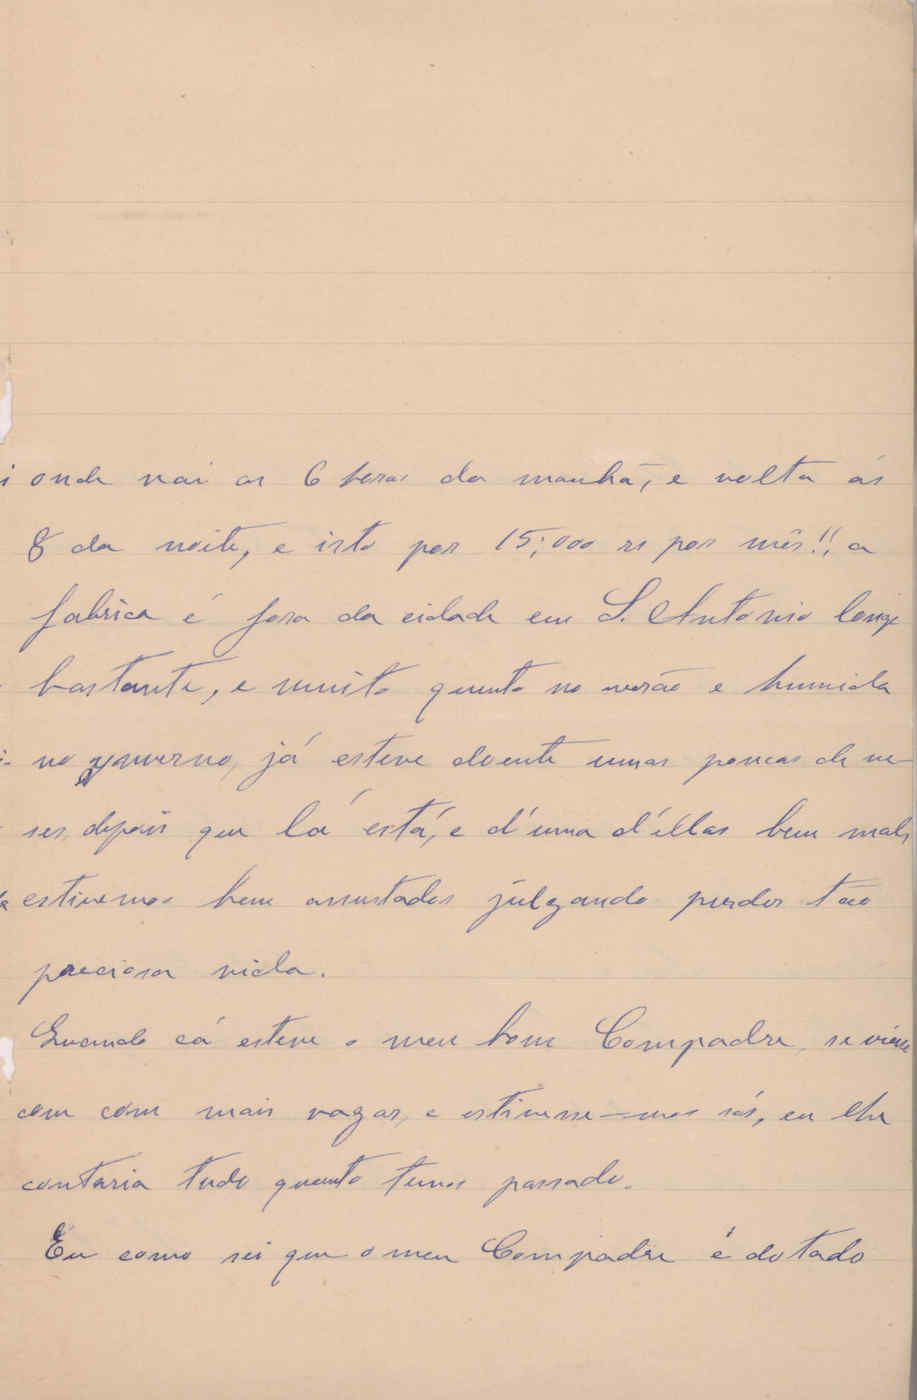 onde vai as 6 horas da manhã, e volta ás
8 da noite, e isto por 15;000 rs por mês!!, a
fabrica é fora da cidade em S. António longe
bastante, e muito quente no verão e humida
no ynverno, já esteve doente umas poucas de ve-
ses, depois que lá está, e d'uma d'éllas bem mal,
estivemos bem assustados julgando perder tão
preciosa vida.
Quando cá esteve o meu bom Compadre, se viesse
com com mais vagar, e estivesse-mos sós, eu lhe
contaria tudo quanto temos passado.
Eu como sei que o meu Compadre é dotado